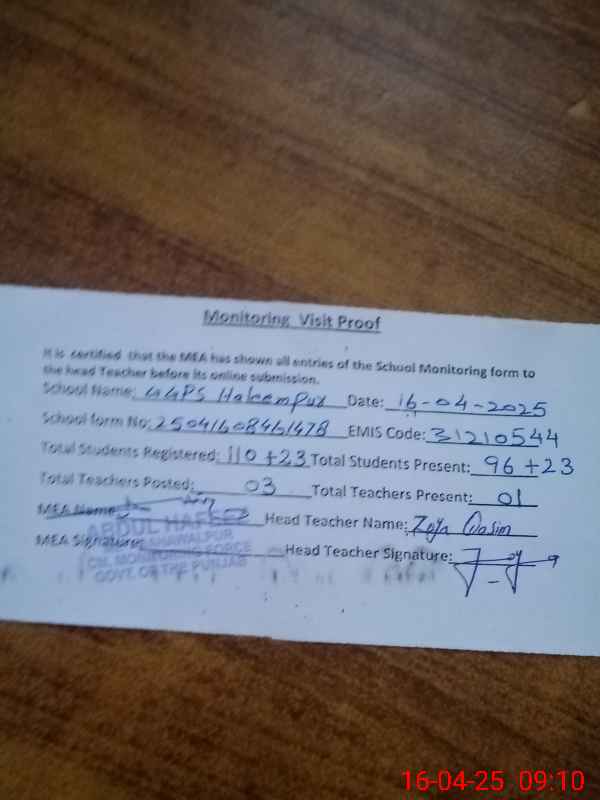 Monitoring Visit Proof
It is certified that the MEA has shown all entries of the School Monitoring form to
the head Teacher before its online submission.
School Name: GGPS Haleempur Date: 16-04-2025
School form No: 25041608461478 EMIS Code: 31210544
Total Students Registered: 110+23 Total Students Present: 96+23
Total Teachers Posted: 03 Total Teachers Present: 01
MEA Name: Head Teacher Name: Zoya Qasim
ABDUL HAFEEZ
MEA Signature: Head Teacher Signature:
BAHAWALPUR
CM. MONITORING FORCE
GOVT. OF THE PUNJAB
16-04-25 09:10